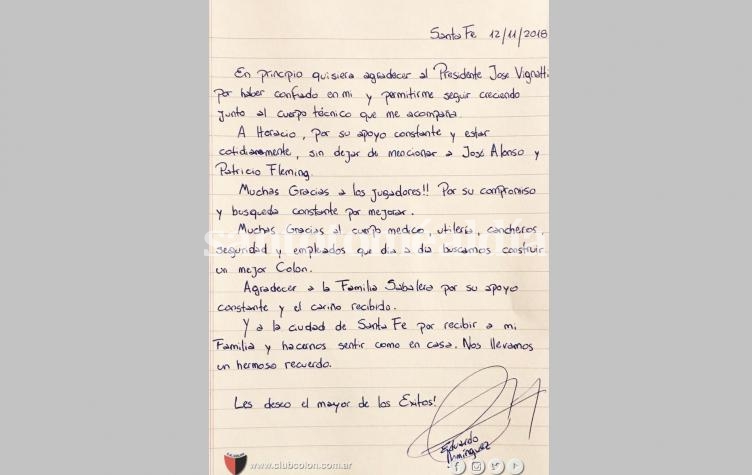 Santa Fe 12/11/2018
En principio quisiera agradecer al Presidente Jose Vignatti
por haber confiado en mi y permitirme seguir creciendo
junto al cuerpo técnico que me acompaña.
A Horacio, por su apoyo constante y estar
cotidianamente, sin dejar de mencionar a José Alonso y
Patricio Fleming.
Muchas Gracias a los jugadores!! Por su compromiso
y busqueda constante por mejorar.
Muchas Gracias al cuerpo medico, utileria, cancheros,
seguridad y empleados que dia a dia buscamos construir
un mejor Colon.
Agradecer a la Familia Sabalera por su apoyo
constante y el cariño recibido.
Y a la ciudad de Santa Fe por recibir a mi
Familia y hacernos sentir como en casa. Nos llevamos
un hermoso recuerdo.
Les deseo el mayor de los Exitos!
Eduardo
Dominguez
www.clubcolon.com.ar